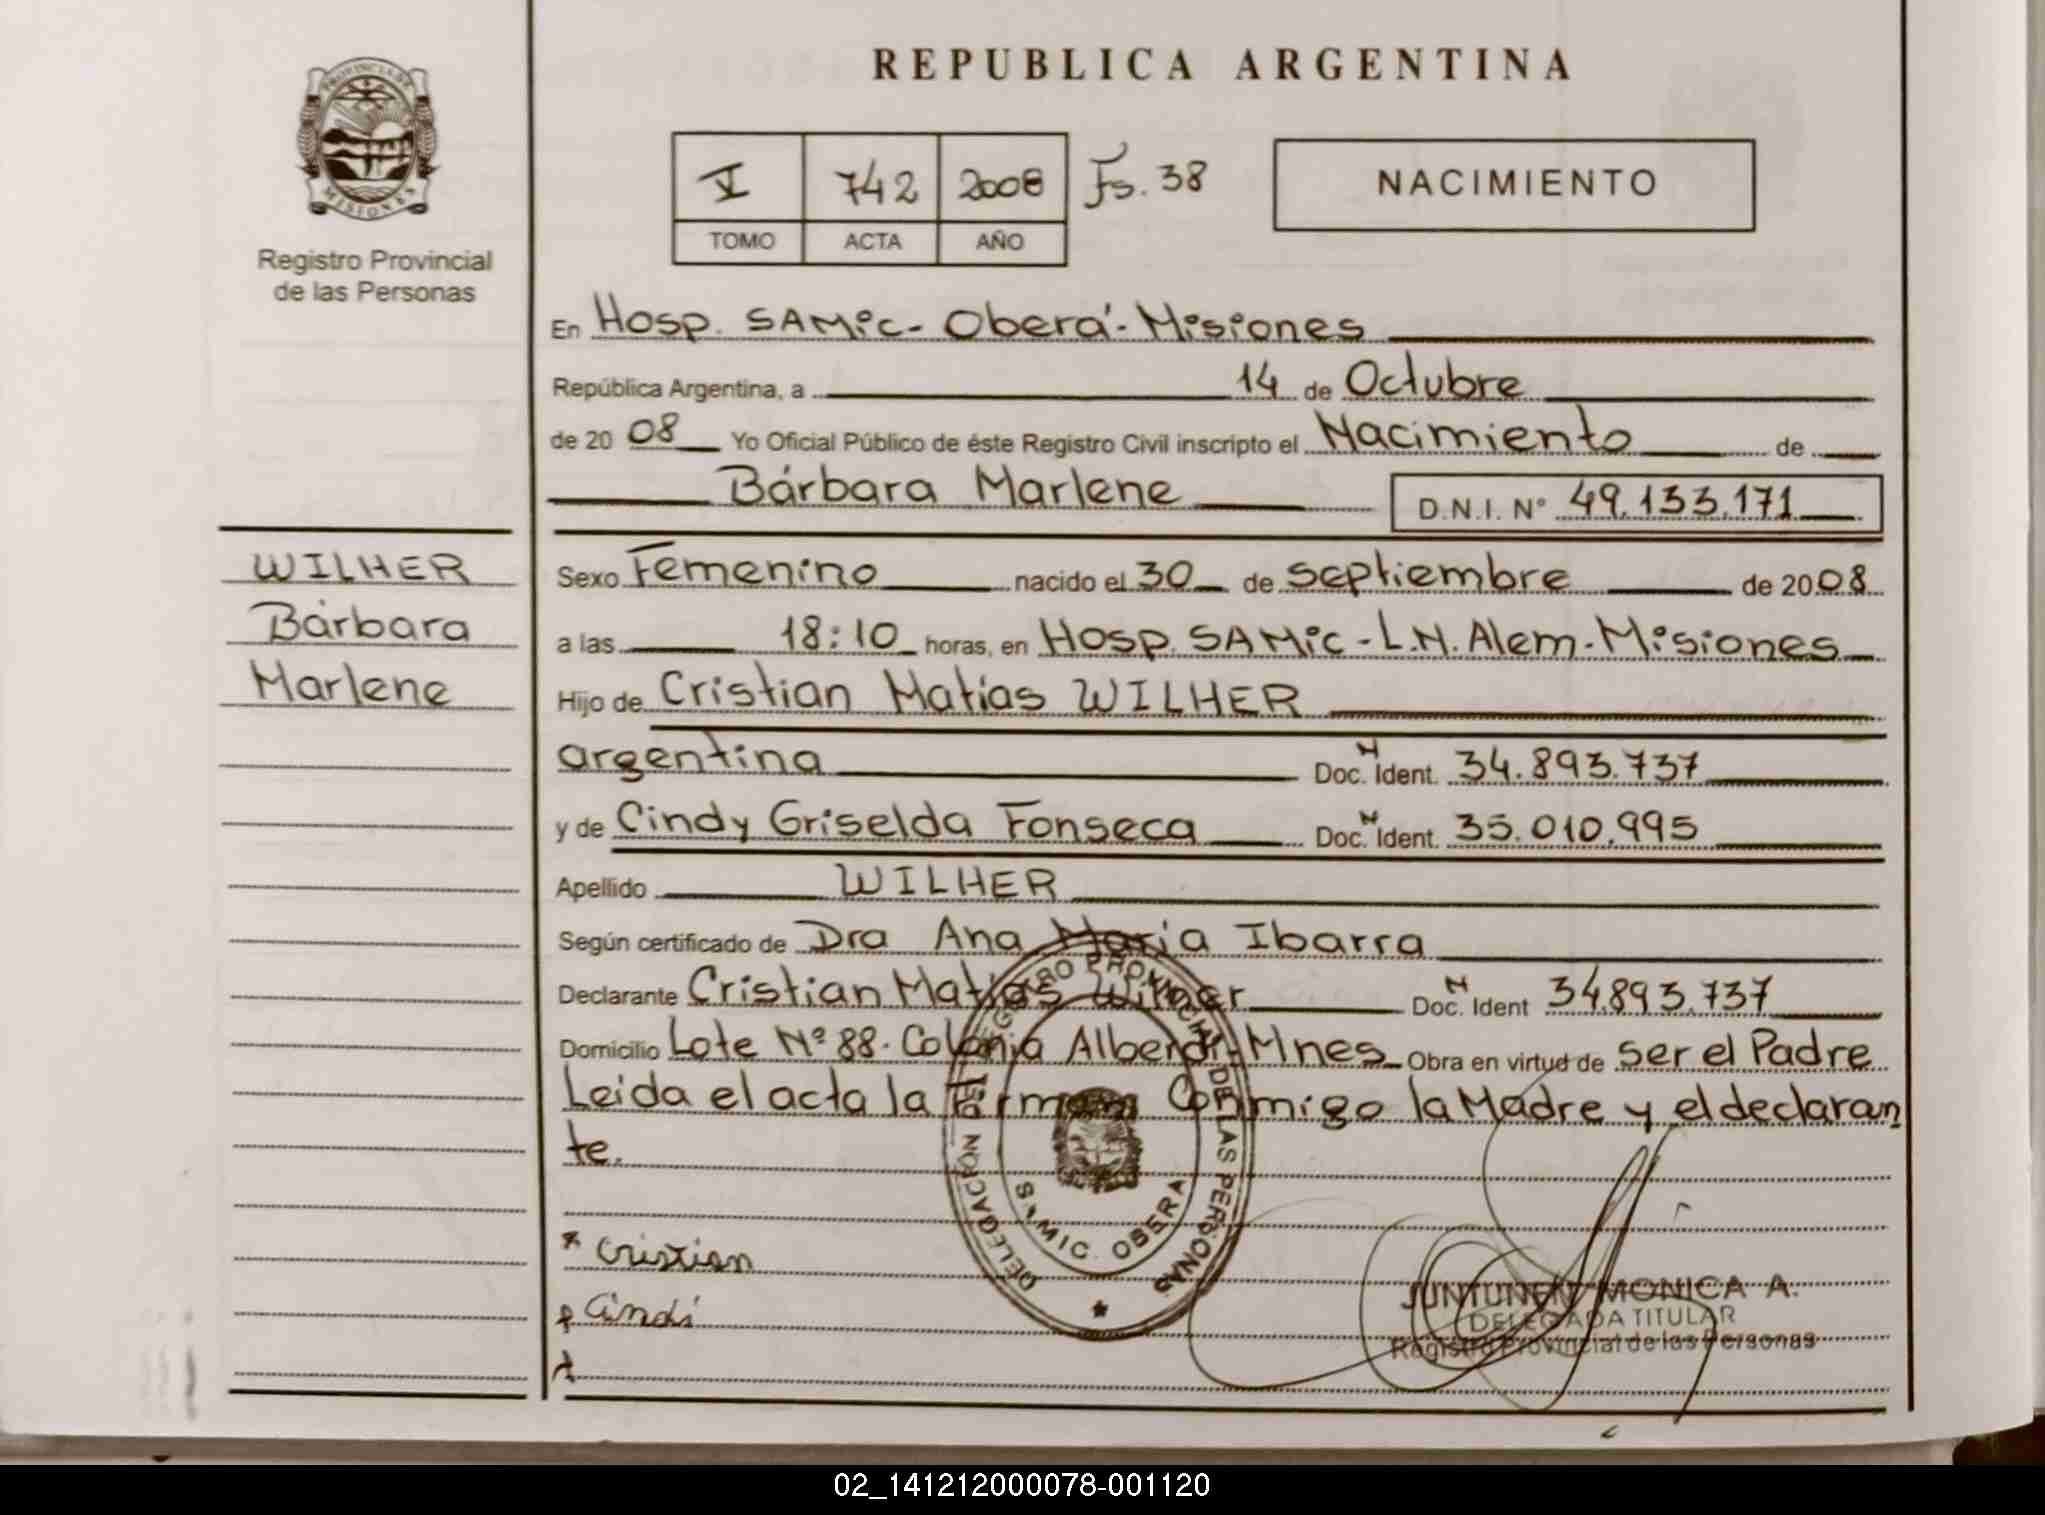 REPUBLICA ARGENTINA
PROVINCIA DE
MISIONES
Registro Provincial
de las Personas
V 742 2008 Fs. 38
TOMO ACTA AÑO
NACIMIENTO
En Hosp. SAMic - Oberá - Misiones
República Argentina, a 14 de Octubre
de 2008 Yo Oficial Público de éste Registro Civil inscripto el Nacimiento de
Bárbara Marlene D.N.I. N° 49.133.171
WILHER
Bárbara
Marlene
Sexo Femenino nacido el 30 de septiembre de 2008
a las 18:10 horas, en Hosp. SAMic - L.N. Alem - Misiones
Hijo de Cristian Matías WILHER
argentina Doc. N Ident. 34.893.737
y de Cindy Griselda Fonseca Doc. N Ident. 35.010.995
Apellido WILHER
Según certificado de Dra Ana María Ibarra
Declarante Cristian Matías Wilher Doc. N Ident 34.893.737
Domicilio Lote Nº 88. Colonia Alberdi - Mnes Obra en virtud de ser el Padre
Leida el acta la Firman Conmigo la Madre y el declaran
te.
DELEGACIÓN DEL REGISTRO PROVINCIAL DE LAS PERSONAS
SAMIC. OBERA
* Cristian
Cindi
JUNTUNEN MONICA A.
DELEGADA TITULAR
Registro Provincial de las Personas
02_141212000078-001120